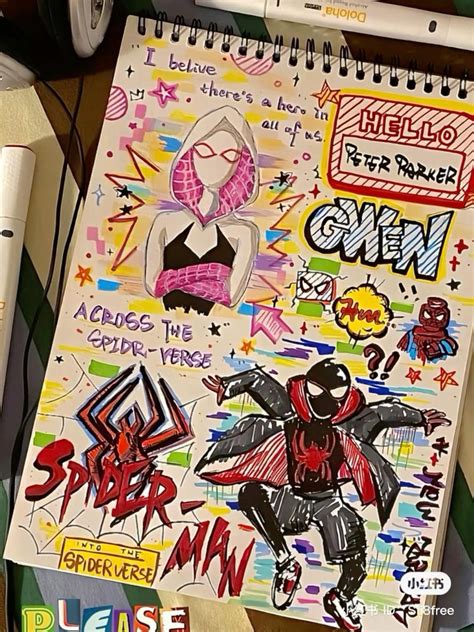 Doloha
I belive
there's a hero in
all of us
HELLO
PETER PARKER
GWEN
Hm
?!
ACROSS THE
SPIDR-VERSE
SPIDER-
MAN
INTO THE
SPIDERVERSE
小红书
PLEASE